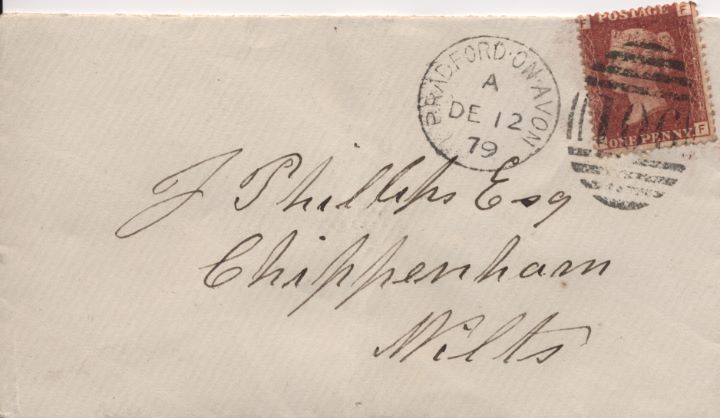 F POSTAGE F
BRADFORD·ON·AVON
A
DE 12
79
ONE PENNY F
J Phillips Esq
Chippenham
Wilts